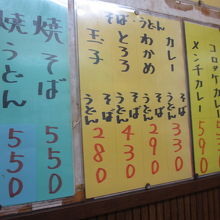 メンチカレー
そば・うどん
カレー そば うどん 330
わかめ そば うどん 290
とろろ そば うどん 430
玉子 そば うどん 280
焼そば 550
焼うどん 550